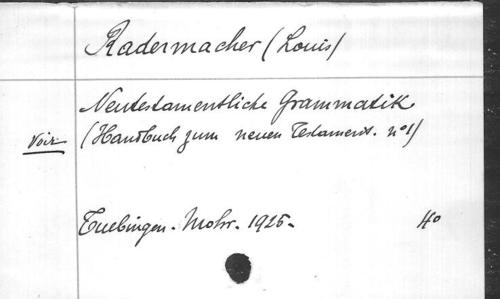 Radermacher (Louis)
Neutestamentliche Grammatik
Voir (Handbuch zum neuen Testament. n°1)
Tuebingen. Mohr. 1925. 4°